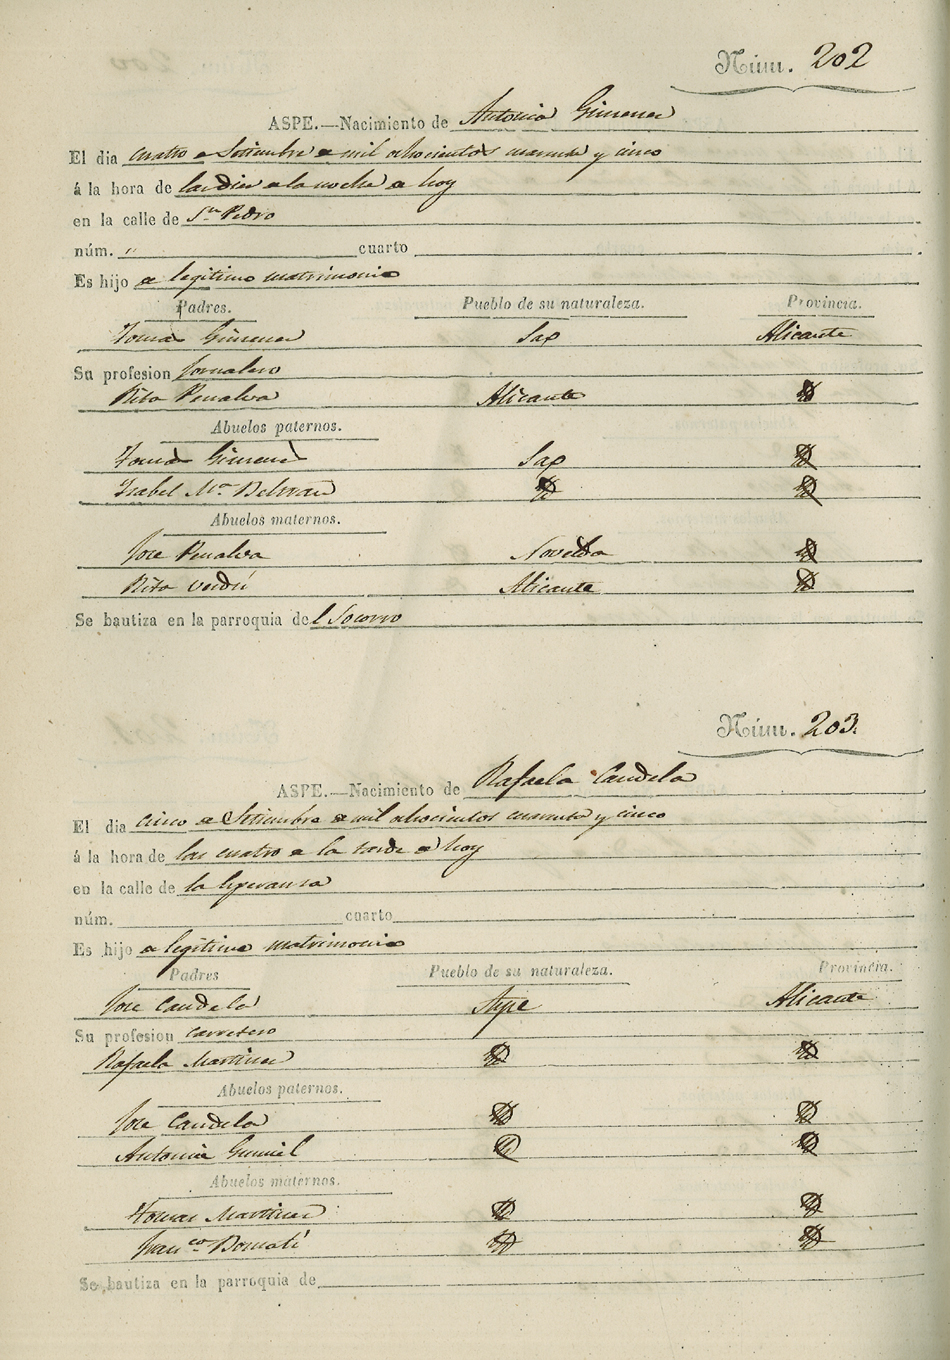 Núm. 202
ASPE.—Nacimiento de Antonia Gimenez
El dia cuatro de Setiembre de mil ochocientos cuarenta y cinco
á la hora de las diez de la noche de hoy
en la calle de Sn Pedro
núm. „ cuarto
Es hijo de legitimo matrimonio
Padres. Pueblo de su naturaleza. Provincia.
Tomas Gimenez Sax Alicante
Su profesion Jornalero
Rita Penalva Alicante
Abuelos paternos.
Tomas Gimenez Sax
Isabel Ma Beltran
Abuelos maternos.
Jose Penalva Novelda
Rita Verdú Alicante
Se bautiza en la parroquia del Socorro
Núm. 203.
ASPE.—Nacimiento de Rafaela Candela
El dia cinco de Setiembre de mil ochocientos cuarenta y cinco
á la hora de las cuatro de la tarde de hoy
en la calle de la Esperanza
núm. cuarto
Es hijo de legitimo matrimonio
Padres Pueblo de su naturaleza. Provincia.
Jose Candela Aspe Alicante
Su profesion Carretero
Rafaela Martinez
Abuelos paternos.
Jose Candela
Antonia
Abuelos maternos.
Tomas Martinez
Franca
Se bautiza en la parroquia de